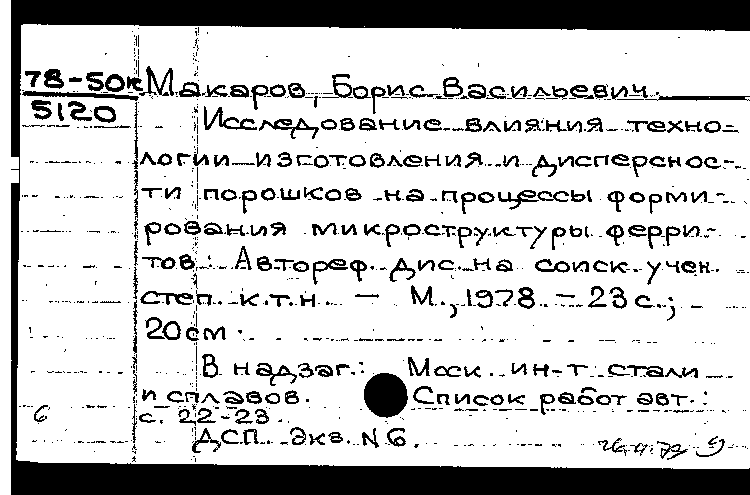 78-50к Макаров, Борис Васильевич.
5120
Исследование влияния техно-
логии изготовления и дисперснос-
ти порошков на процессы форми-
рования микроструктуры ферри-
тов: Автореф. дис. на соиск. учен.
степ. к.т.н. — М., 1978. — 23 с.;
20 см.
В надзаг.: Моск. ин-т стали
и сплавов. Список работ авт.:
6 с. 22-23
ДСП. Экз. N 6.